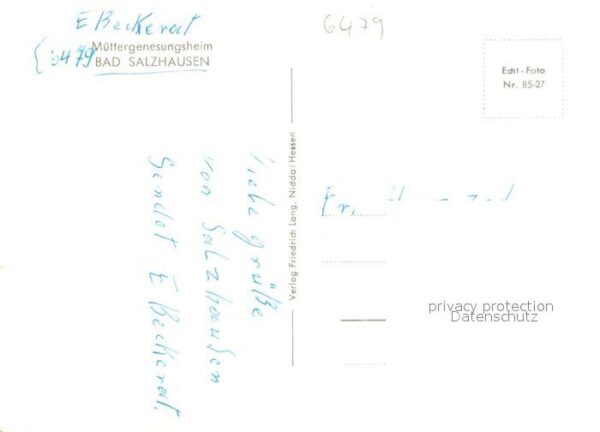 E Beckerat
6479
Müttergenesungsheim
6479 BAD SALZHAUSEN
Echt-Foto
Nr. 85-27
Liebe grüße
von Salzhausen
Sendet E Beckerat.
Verlag Friedrich Lang, Nidda/Hessen
Fr.
privacy protection
Datenschutz